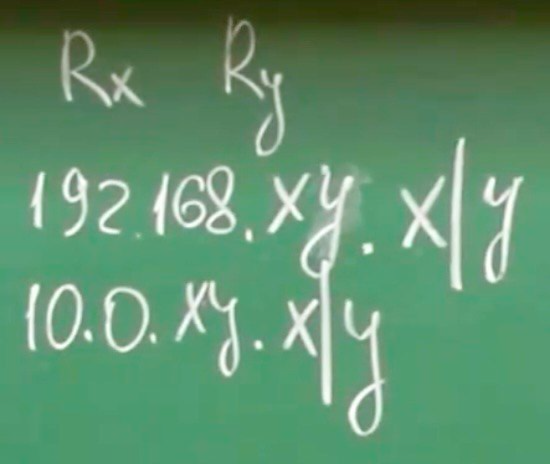 Rx Ry
192.168.xy.x|y
10.0.xy.x|y